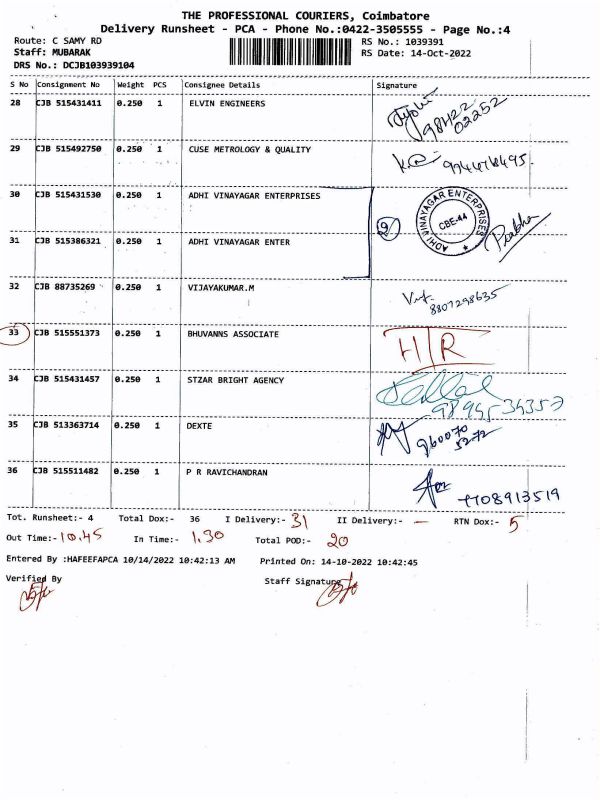 THE PROFESSIONAL COURIERS, Coimbatore
Delivery Runsheet - PCA - Phone No.:0422-3505555 - Page No.:4
Route: C SAMY RD
RS No.: 1039391
Staff: MUBARAK
RS Date: 14-Oct-2022
DRS No.: DCJB103939104
S No Consignment No Weight PCS Consignee Details Signature
28 CJB 515431411 0.250 1 ELVIN ENGINEERS 98422 02252
29 CJB 515492750 0.250 1 CUSE METROLOGY & QUALITY
30 CJB 515431530 0.250 1 ADHI VINAYAGAR ENTERPRISES
ADHI VINAYAGAR ENTERPRISES
CBE-44
9
Prabha
31 CJB 515386321 0.250 1 ADHI VINAYAGAR ENTER
32 CJB 88735269 0.250 1 VIJAYAKUMAR.M 8807298635
33 CJB 515551373 0.250 1 BHUVANNS ASSOCIATE
34 CJB 515431457 0.250 1 STZAR BRIGHT AGENCY
35 CJB 513363714 0.250 1 DEXTE 960070
5272
36 CJB 515511482 0.250 1 P R RAVICHANDRAN 7708913519
Tot. Runsheet:- 4 Total Dox:- 36 I Delivery:- 31 II Delivery:- — RTN Dox:- 5
Out Time:- 10.45 In Time:- 1.30 Total POD:- 20
Entered By :HAFEEFAPCA 10/14/2022 10:42:13 AM Printed On: 14-10-2022 10:42:45
Verified By Staff Signature